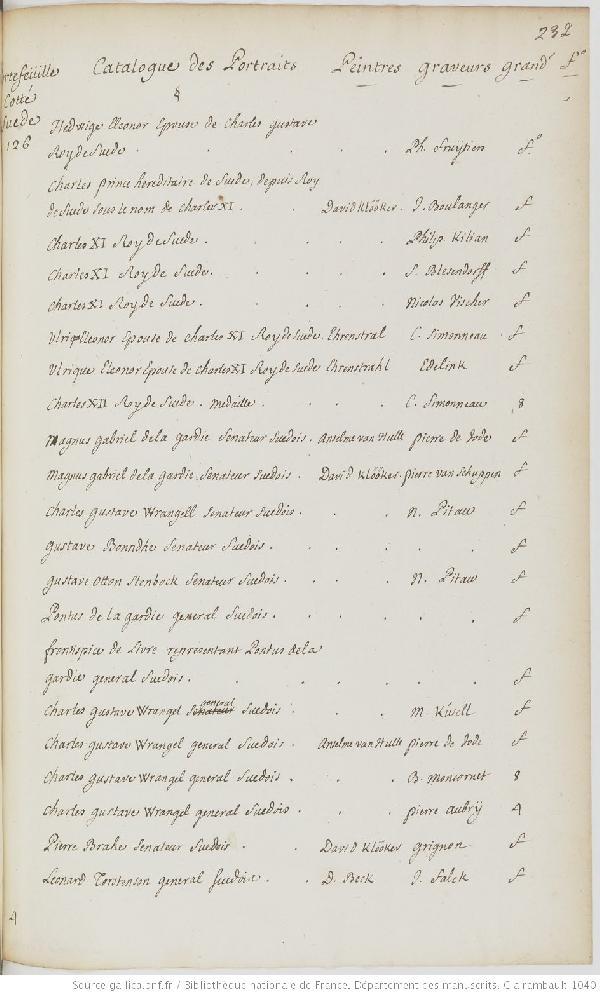 232
rtefeüille Catalogue des Portraits Peintres graveurs grand.r f.o
Cotté
Suede
126
Hedwige Eleonor Epouse de Charles gustave
Roy de Suede . . . . . Ph. fruytiers f.o
Charles prince hereditaire de Suede, depuis Roy
de Suede sous le nom de Charles XI . David Klöoker . J. Boulanger f
Charles XI Roy de Suede . . . . Philip. Kilian f
Charles XI Roy de Suede. . . . . S. Blesendorff f
Charles XI Roy de Suede . . . . Nicolos Vischer f
Vlriq Eleonor Epouse de Charles XI Roy de Suede Ehrenstral C. Simonneau f
Vlrique Eleonor Epouse de Charles XI Roy de Suede Ehrenstrahl Edelink f
Charles XII Roy de Suede . Medaille . . . C. Simonneau 8
Magnus gabriel de la gardie Senateur Suedois . Anselme van Hulle pierre de Jode f
Magnus gabriel de la gardie Senateur Suedois . David Klöoker pierre van Schuppen f
Charles gustave Wrangell Senateur Suedois . . . N. Pitau f
gustave Bonndhe Senateur Suedois . . . . . f
gustave Otton Stenbock Senateur Suedois . . . N. Pitau f
Pontus de la gardie general Suedois . . . . . f
frontispice de Livre representant Pontus de la
gardie general Suedois . . . . . . f
Charles gustave Wrangel Senateur general Suedois . . M. Küsell f
Charles gustave Wrangel general Suedois . Anselme van Hulle pierre de Jode f
Charles gustave Wrangel general Suedois . . . B. Moncornet 8
Charles gustave Wrangel general Suedois . . . pierre aubrÿ 4
Pierre Brahe Senateur Suedois . . David Klöoker grignon f
Leonard Torstenson general Suedois . . D. Beck J. Falck f
Source gallica.bnf.fr / Bibliothèque nationale de France. Département des manuscrits. Clairambault 1040